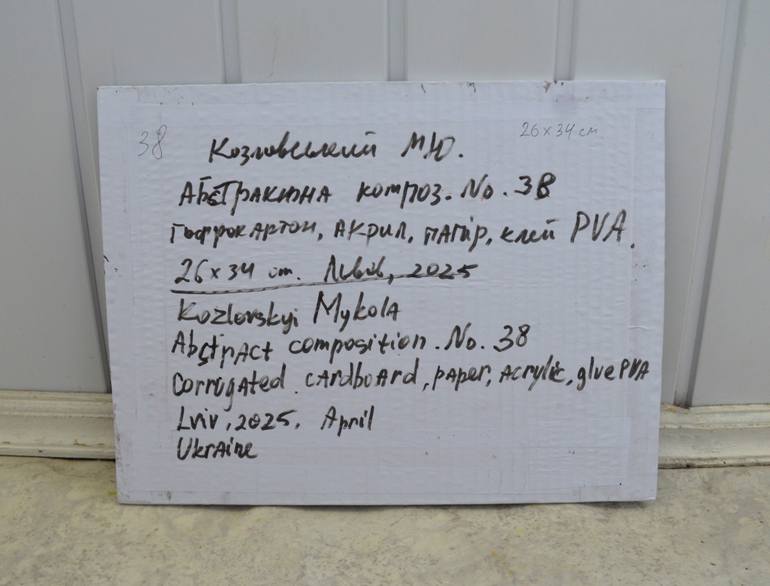 38
26 x 34 см
Козловський М.Ю.
Абстрактна композ. No. 38
Гофрокартон, акрил, папір, клей PVA.
26 x 34 cm. Львів, 2025
Kozlovskyi Mykola
Abstract composition. No. 38
Corrugated cardboard, paper, acrylic, glue PVA
Lviv, 2025, April
Ukraine